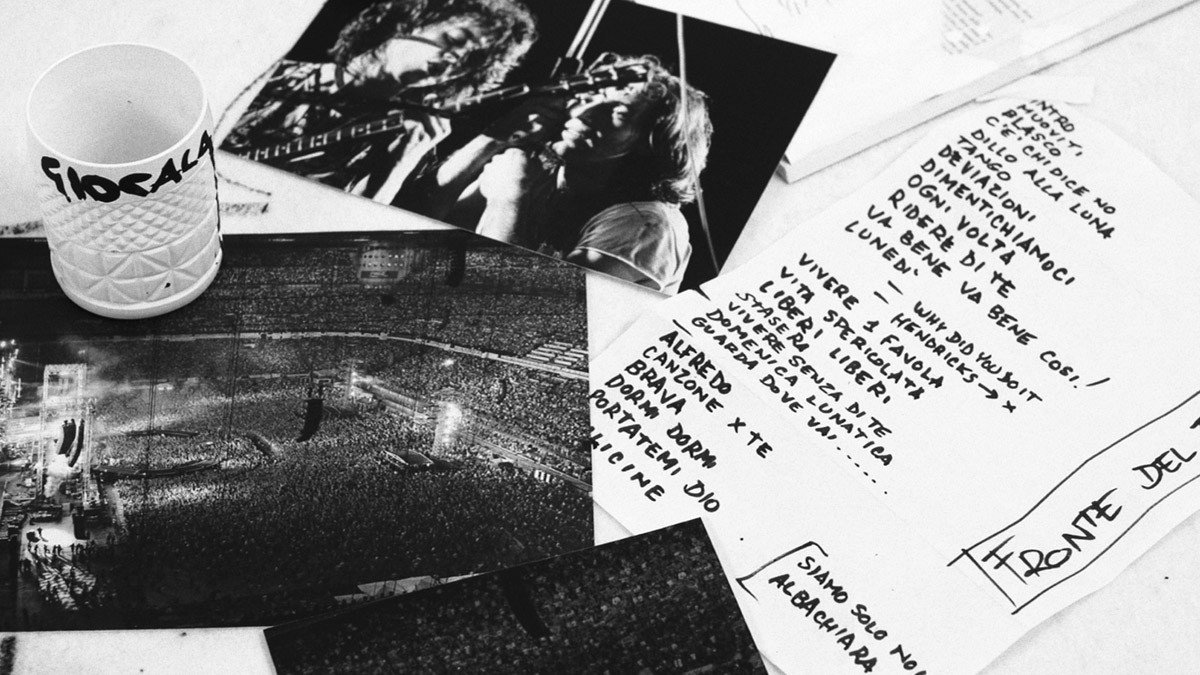 GIOCALA
INTRO
MUOVITI
BLASCO
C'E' CHI DICE NO
DILLO ALLA LUNA
TANGO
DEVIAZIONI
DIMENTICHIAMOCI
OGNI VOLTA
RIDERE DI TE
VA BENE VA BENE COSI.!
LUNEDI'
— WHY DID YOU DO IT
— HENDRICKS → x
VIVERE 1 FAVOLA
VITA SPERICOLATA
LIBERI LIBERI
STASERA
VIVERE SENZA DI TE
DOMENICA LUNATICA
GUARDA DOVE VAI.......
ALFREDO
CANZONE x TE
BRAVA
DORMI DORMI
PORTATEMI DIO
SIAMO SOLO NOI
ALBACHIARA
FRONTE DEL